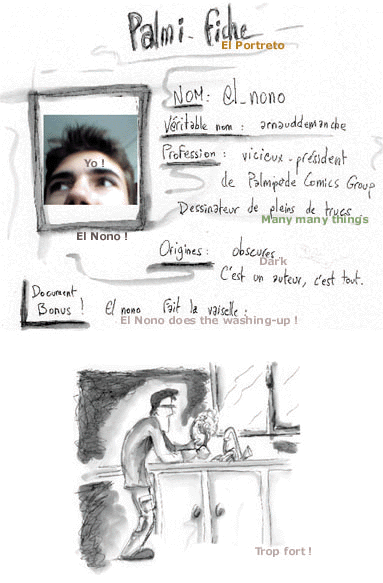 Palmi-fiche
El Portreto
NOM: el_nono
Véritable nom : arnauddemanche
Yo !
Profession : vicieux-président
de Palmipède Comics Group
Dessinateur de pleins de trucs
Many many things
El Nono !
Origines : obscures
Dark
C'est un auteur, c'est tout.
Document
Bonus ! El nono fait la vaiselle :
El Nono does the washing-up !
Trop fort !